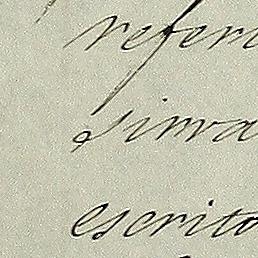 refer
sirva
escrito